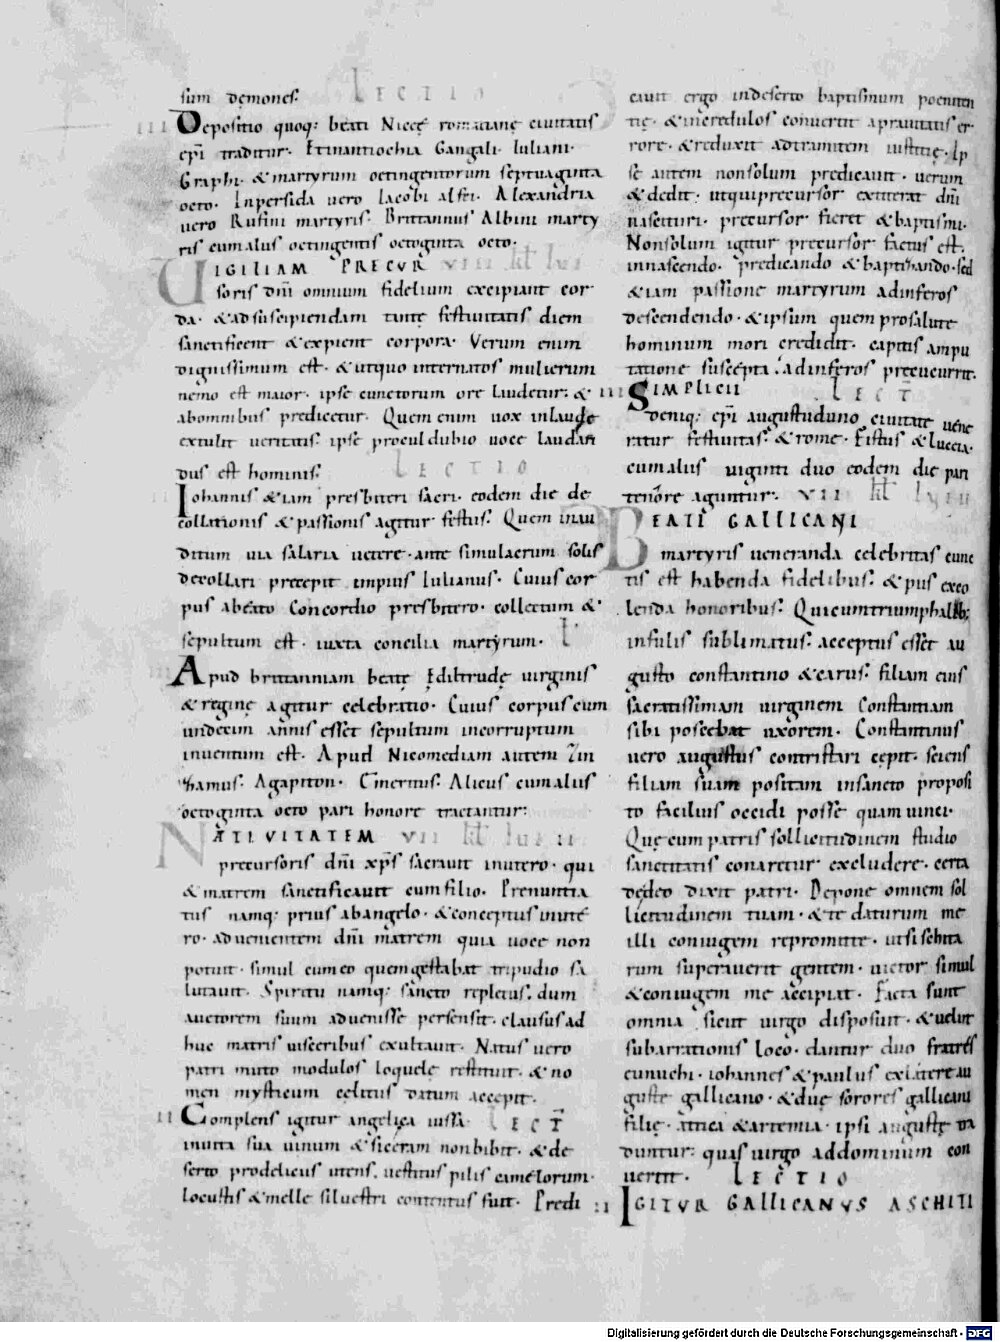 sum demones. LECTIO
III Depositio quoq; beati Nicetę romacianę ciuitatis
epi traditur. Et in antiochia Gangali. Iuliani.
Graphi. & martyrum octingentorum septuaginta
octo. In persida uero Iacobi alfei. Alexandria
uero Rufini martyris. Brittannus Albini marty
ris cum aliis octingentis octoginta octo.
UIGILIAM PRECUR VIII kl lui
soris dni omnium fidelium excipiant cor
da. & ad suscipiendam tantę festiuitatis diem
sanctificent & expient corpora. Verum enim
dignissimum est. & utquo inter natos mulierum
nemo est maior. ipse cunctorum ore laudetur. &
ab omnibus predicetur. Quem enim uox in laude
extulit ueritatis. ipse procul dubio uoce laudan
dus est hominis. LECTIO
Iohannis & iam presbiteri sacri. eodem die de
collationis & passionis agitur festus. Quem in au
ditum uia salaria uetere. ante simulacrum solis
decollari precepit impius Iulianus. Cuius cor
pus abeato Concordio presbitero. collectum &
sepultum est. iuxta concilia martyrum. L
Apud brittanniam beatę Ediltrudę uirginis
& reginę agitur celebratio. Cuius corpus cum
undecim annis esset sepultum incorruptum
inuentum est. Apud Nicomediam autem Zin
Thamus. Agapiton. Cineritus. Alicus cum aliis
octoginta octo pari honore tractantur:
NATIUITATEM VII kl lu II
precursoris dni xps sacrauit in utero. qui
& matrem sanctificauit cum filio. Prenuntia
tus namq; prius ab angelo. & conceptus in ute
ro. ad uenientem dni matrem quia uoce non
potuit. simul cum eo quem gestabat tripudio sa
lutauit. Spiritu namq; sancto repletus. dum
auctorem suum aduenisse persensit. clausus ad
huc matris uisceribus exultauit. Natus uero
patri muto modulos loquelę restituit. & no
men mysticum celitus datum accepit.
II Complens igitur angelica iussa. LECT
inuita sua uinum & siceram non bibit. & de
serto prodelicus utens. uestitus pilis camelorum.
locustis & melle siluestri contentus fuit. Predi
cauit ergo in deserto baptismum poeniten
tię. & incredulos conuertit a prauitatis er
rore. & reduxit ad tramitem iustitię. Ip
se autem non solum predicauit. uerum
& dedit. ut qui precursor extiterat dni
nascituri. precursor fieret & baptismi.
Non solum igitur precursor factus est.
in nascendo. predicando & baptisando. sed
& iam passione martyrum ad inferos
descendendo. & ipsum quem pro salute
hominum mori credidit. capitis ampu
tatione suscepta. ad inferos precucurrit.
III SIMPLICII LECT
deniq; epi augustuduno ciuitate uene
ratur festiuitas. & rome. Fistus & luccia.
cum aliis uiginti duo eodem die pari
tenore aguntur. VII kl
BEATI GALLICANI
martyris ueneranda celebritas cunc
tis est habenda fidelibus. & piis exco
lenda honoribus. Qui cum triumphalib;
infulis sublimatus. acceptus esset au
gusto constantino & carus. filiam eius
sacratissimam uirginem Constantiam
sibi poscebat uxorem. Constantinus
uero augustus contristari cępit. sciens
filiam suam positam in sancto proposi
to facilius occidi posse quam uinci.
Quę cum patris sollicitudinem studio
sanctitatis conaretur excludere. certa
de deo dixit patri. Depone omnem sol
licitudinem tuam. & te daturum me
illi coniugem repromitte. ut si schita
rum superauerit gentem. uictor simul
& coniugem me accipiat. Facta sunt
omnia sicut uirgo disposuit. & uelut
subarrationis loco. dantur duo fratres
eunuchi. iohannes & paulus ex latere au
guste gallicano. & duę sorores gallicani
filię. attica & artemia. ipsi augustę tra
duntur: quas uirgo ad dominum con
uertit. LECTIO
II IGITUR GALLICANUS ASCHITI
Digitalisierung gefördert durch die Deutsche Forschungsgemeinschaft - DFG